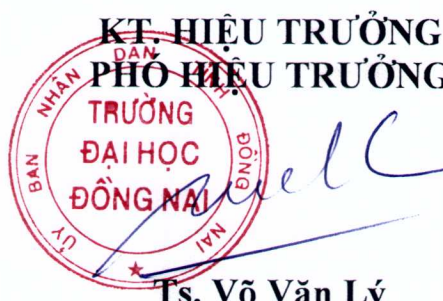 KT. HIỆU TRƯỞNG
PHÓ HIỆU TRƯỞNG
ỦY BAN NHÂN DÂN TỈNH ĐỒNG NAI
TRƯỜNG
ĐẠI HỌC
ĐỒNG NAI
Ts. Võ Văn Lý